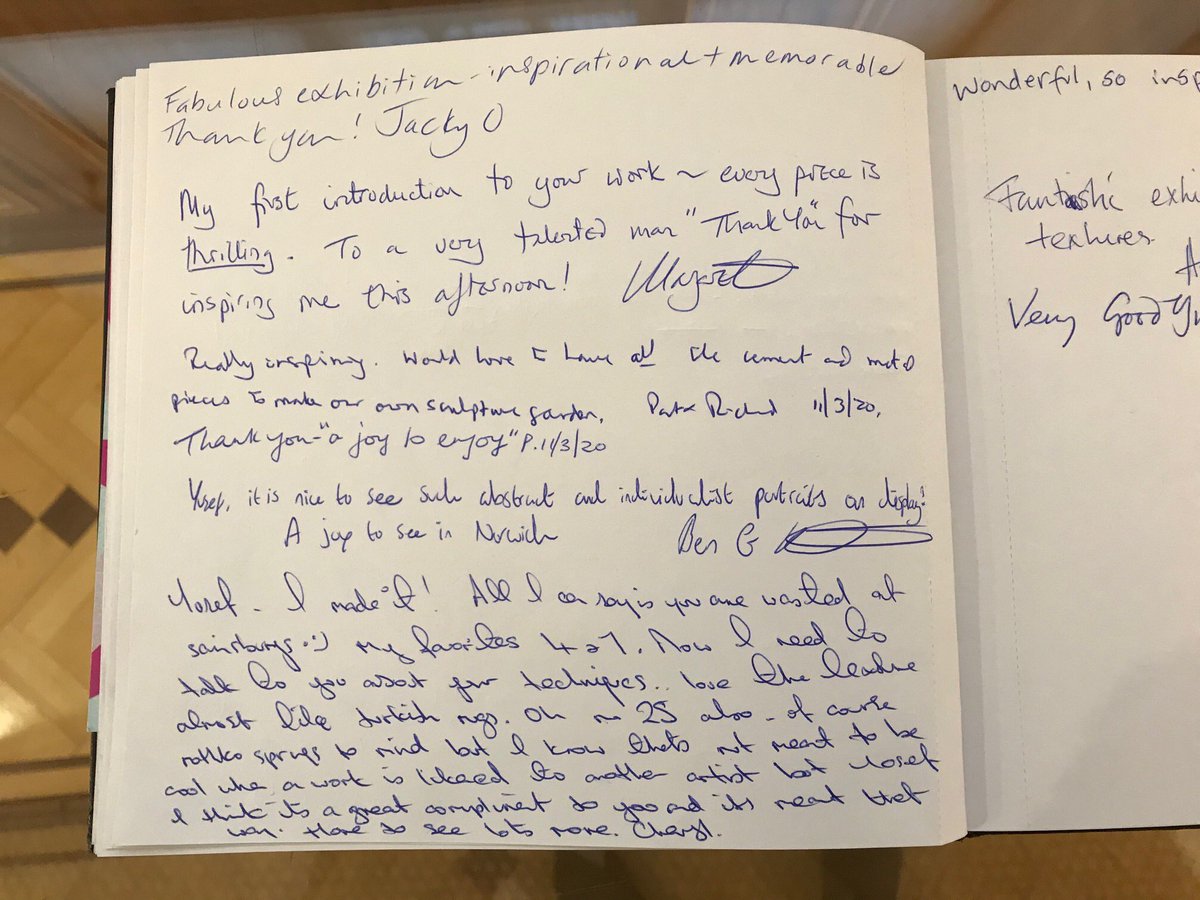 Fabulous exhibition - inspirational + memorable
Thank you! Jacky O
My first introduction to your work ~ every piece is
thrilling. To a very talented man "Thank You" for
inspiring me this afternoon! Margaret
Really inspiring. Would love to have all the cement and metal
pieces to make our own sculpture garden. Richard 11/3/20.
Thank you - "a joy to enjoy" P. 11/3/20
Yusef, it is nice to see such abstract and individualist portraits on display!
A joy to see in Norwich Ben G
Yosef - I made it! All I can say is you are wasted at
sainsburys :) My favorites 4 + 7. Now I need to
talk to you about your techniques.. love the
almost like turkish rugs. Oh 25 also - of course
rothko springs to mind but I know thats not meant to be
cool when a work is likened to another artist but Yosef
I think its a great compliment to you and its meant that
way. Hope to see lots more. Cheryl.
Wonderful, so insp
Fantastic exhi
textures.
Very Good Yu